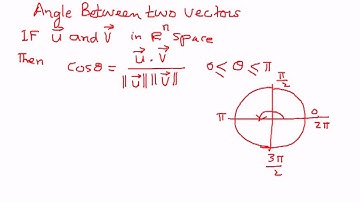 Angle Between two vectors
IF u⃗ and v⃗ in Rⁿ space
Then cosθ = u⃗ . v⃗ / ‖u⃗‖ ‖v⃗‖ 0 ≤ θ ≤ π
π/2
π
0
2π
3π/2